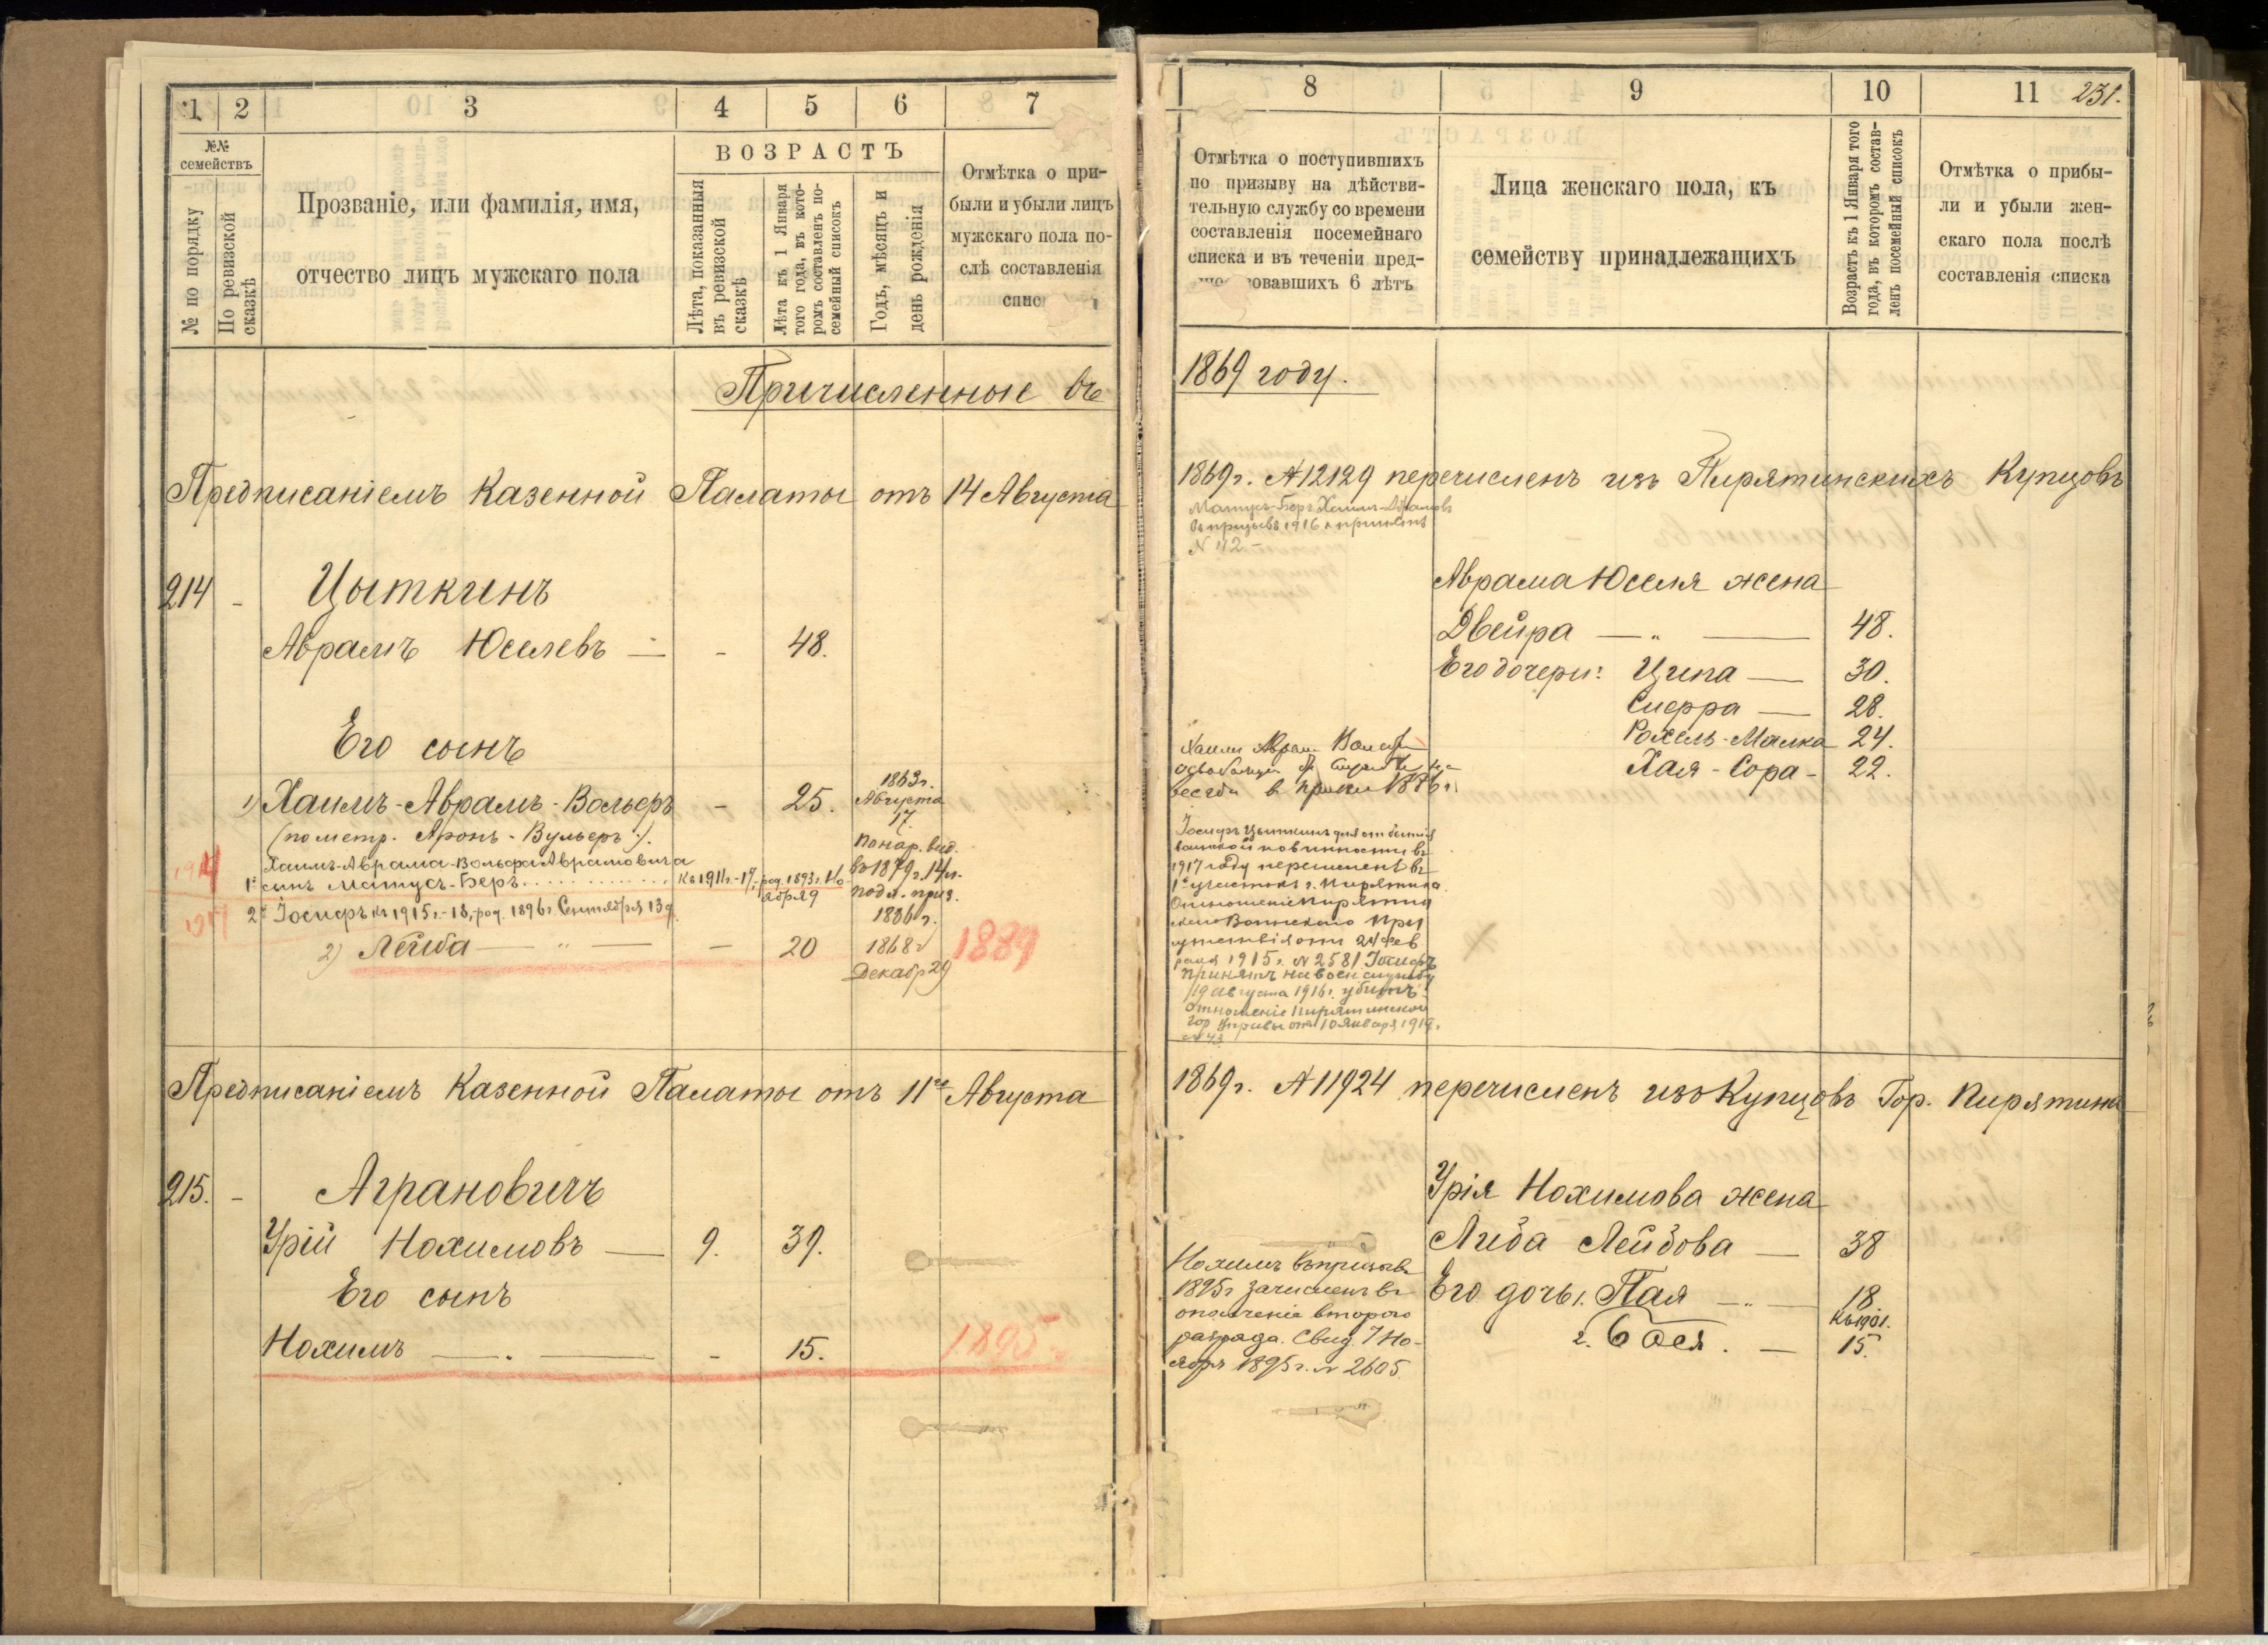 1 2 3 4 5 6 7
№№ семействъ
№ по порядку
По ревизской сказкѣ
Прозваніе, или фамилія, имя,
отчество лицъ мужскаго пола
ВОЗРАСТЪ
Лѣта, показанныя
въ ревизской
сказкѣ
Лѣта къ 1 Января
того года, въ кото-
ромъ составленъ по-
семейный списокъ
Годъ, мѣсяцъ и
день рожденія
Отмѣтка о при-
были и убыли лицъ
мужскаго пола по-
слѣ составленія
спис
Причисленные въ
Предписаніемъ Казенной Палаты отъ 14 Августа
214 - Цыткинъ
Аврамъ Юселевъ — - 48.
Его сынъ
1) Хаимъ-Аврамъ-Вольеръ - 25. 1863г.
Августа
17.
(по метр. Аронъ-Вульеръ).
по нар. вид.
въ 1879г. 14 л.
подл. приз.
1886 г.
1914
Хаимъ-Аврама-Вольфа Аврамовича
1й сынъ Матусъ-Беръ........ Къ 1911г.-17, род. 1893г. Но-
ября 9
1917
2й Іосифъ къ 1915г.-18, род. 1896г. Сентября 13 д.
2) Лейба — " — - 20 1868г
Декабр 29
1889
Предписаніемъ Казенной Палаты отъ 11го Августа
215. - Аграновичъ
Урій Нохимовъ — 9. 39.
Его сынъ
Нохимъ — . — - 15. 1895
8 9 10 11 231.
Отмѣтка о поступившихъ
по призыву на дѣйстви-
тельную службу со времени
составленія посемейнаго
списка и въ теченіи пред-
шествовавшихъ 6 лѣтъ
Лица женскаго пола, къ
семейству принадлежащихъ
Возрастъ къ 1 Января того
года, въ которомъ состав-
ленъ посемейный списокъ
Отмѣтка о прибы-
ли и убыли жен-
скаго пола послѣ
составленія списка
1869 году.
1869г. №12129 перечисленъ изъ Пирятинскихъ Купцовъ
Матусъ-Беръ Хаимъ-Абрамовъ
въ призывъ 1916 г принятъ
N 112 -
Аврама Юселя жена
Двейра — „ — 48.
Его дочери: Ципа — 30.
Сиерра — 28.
Рохель-Малка 24.
Хая-Сора- 22.
Хаимъ Авран
в 1886г.
Іосифъ Цыткинъ для отбытія
воинской повинности въ
1917 году перечисленъ въ
1й участокъ г. Пирятина.
Отношеніе Пирятин
скаго Воинскаго При
сутствія отъ 24 Фев
раля 1915г. № 2581 Іосифъ
Принятъ на воен службу
19 августа 1916г. убитъ.
Отношеніе Пирятинской
гор управы отъ 10 Января 1919.
№ 43
1869г. №11924 перечисленъ изъ Купцовъ Гор. Пирятина
Урія Нохимова жена
Либа Лейбова — 38
Его дочь 1. Пая — „ — 18
Къ 1901.
2. Бася. — 15.
Нохимъ въ призывъ
1895г зачисленъ въ
ополченіе второго
разряда. Свид. 7 Но-
ября 1895г. № 2605.